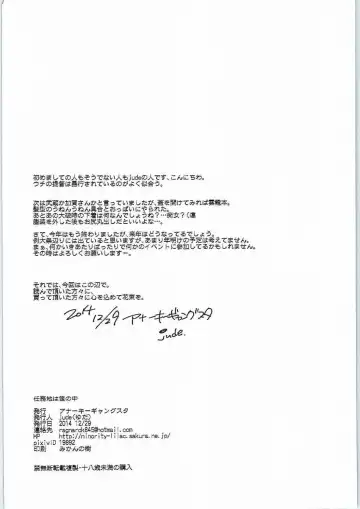 初めましての人もそうでない人もjudeの人です、こんにちわ。
ウチの提督は愚行されているのがよく似合う。
次は武蔵か加賀さんかと言っていましたが、蓋を開けてみれば雲龍本。
髪型のうねんうねん具合とおっぱいにやられた。
あとあの大破時の下着は何なんでしょうね?…痴女?(違
艤装を外した後もお尻丸出しだといいよな…。
さて、今年はもう終わりましたが、来年はどうなってるでしょう。
例大祭辺りには出ていると思いますが、あまり年明けの予定は考えてません。
まぁ、何かいきあたりばったりで何かのイベントに参加してるかもしれません。
その時はよろしくお願いします。
それでは、今回はこの辺で。
読んで頂いた方々に、
買って頂いた方々に心を込めて花束を。
2014 12/29 アナーキーギャングスタ
jude.
任務地は服の中
発行 アナーキーギャングスタ
発行人 jude(ゆだ)
発行日 2014 12/29
連絡先 ragnarock845@hotmail.com
HP http://minority-lilac.sakura.ne.jp/
pixivID 19892
印刷 みかんの樹
禁無断転載複製・十八歳未満の購入